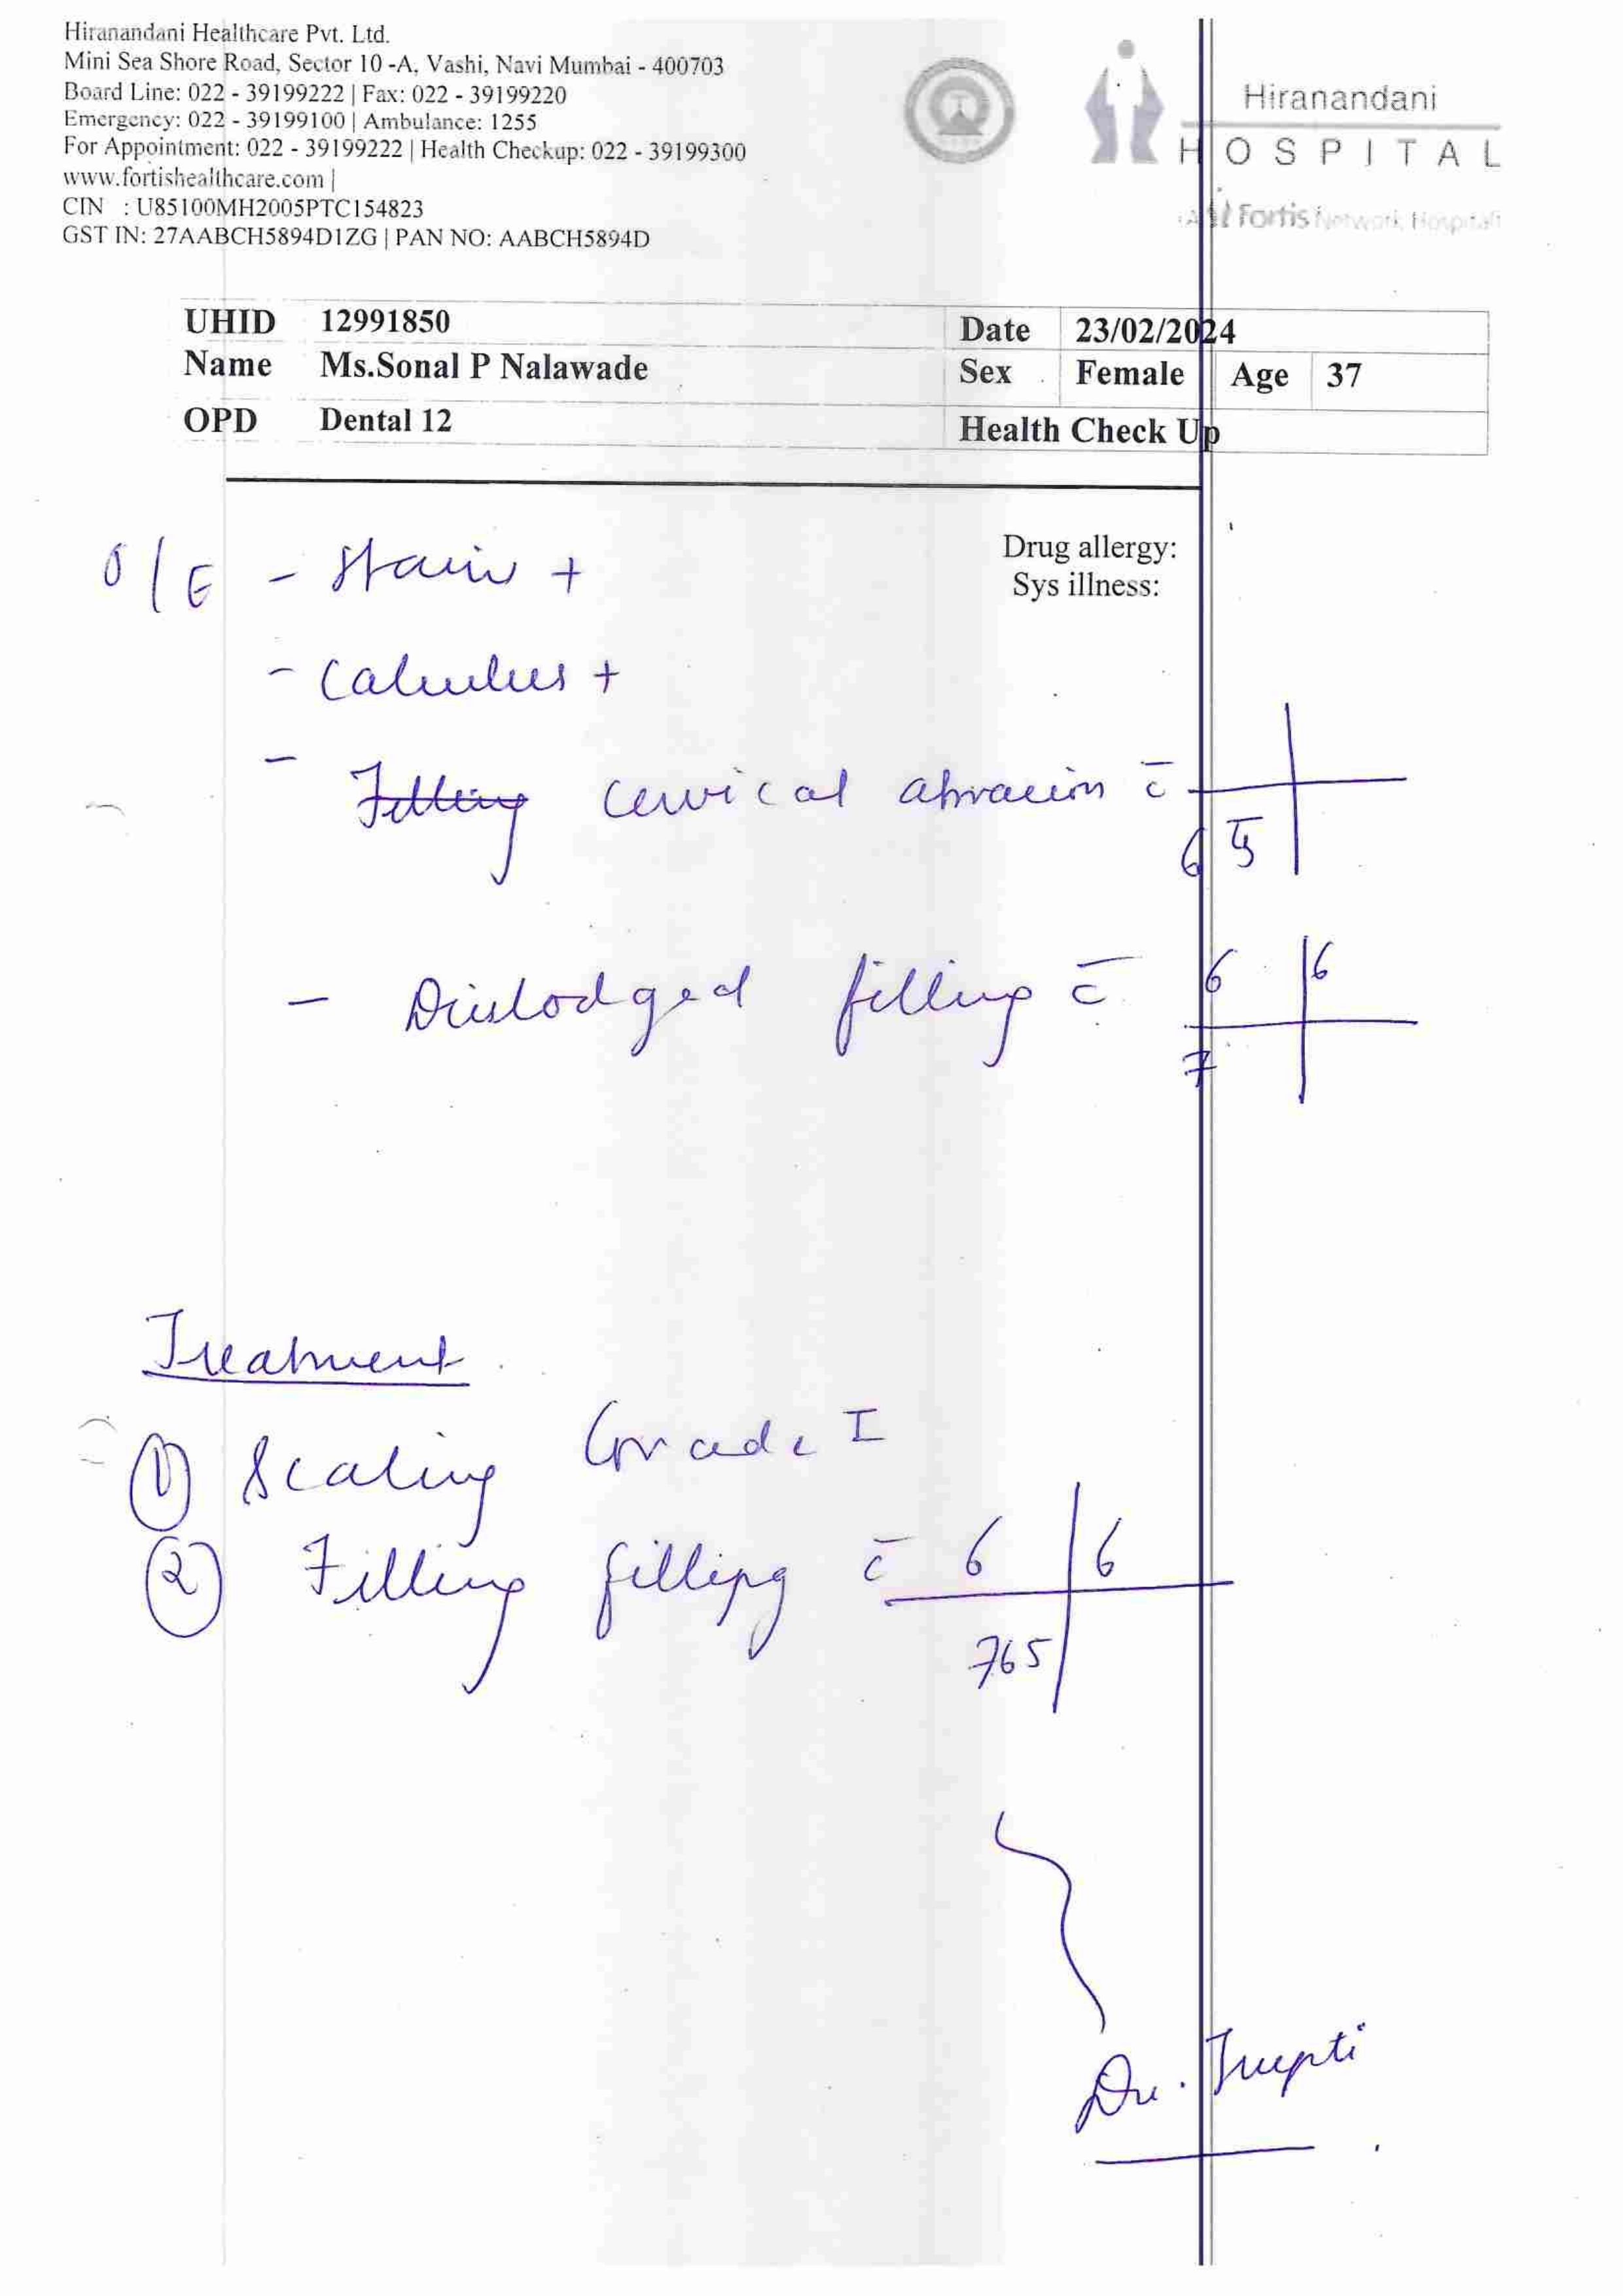 Hiranandani Healthcare Pvt. Ltd.
Mini Sea Shore Road, Sector 10 -A, Vashi, Navi Mumbai - 400703
Board Line: 022 - 39199222 | Fax: 022 - 39199220
Emergency: 022 - 39199100 | Ambulance: 1255
For Appointment: 022 - 39199222 | Health Checkup: 022 - 39199300
www.fortishealthcare.com |
CIN : U85100MH2005PTC154823
GST IN: 27AABCH5894D1ZG | PAN NO: AABCH5894D
Hiranandani
HOSPITAL
Fortis Network Hospital
UHID 12991850 Date 23/02/2024
Name Ms.Sonal P Nalawade Sex Female Age 37
OPD Dental 12 Health Check Up
Drug allergy:
Sys illness:
O/E - Stain +
- Calculus +
- Filling cervical abrasion c̄
6 5
- Dislodged filling c̄ 6 | 6
7
Treatment
① Scaling Grade I
② Filling filling c̄ 6 | 6
765
Dr. Trupti